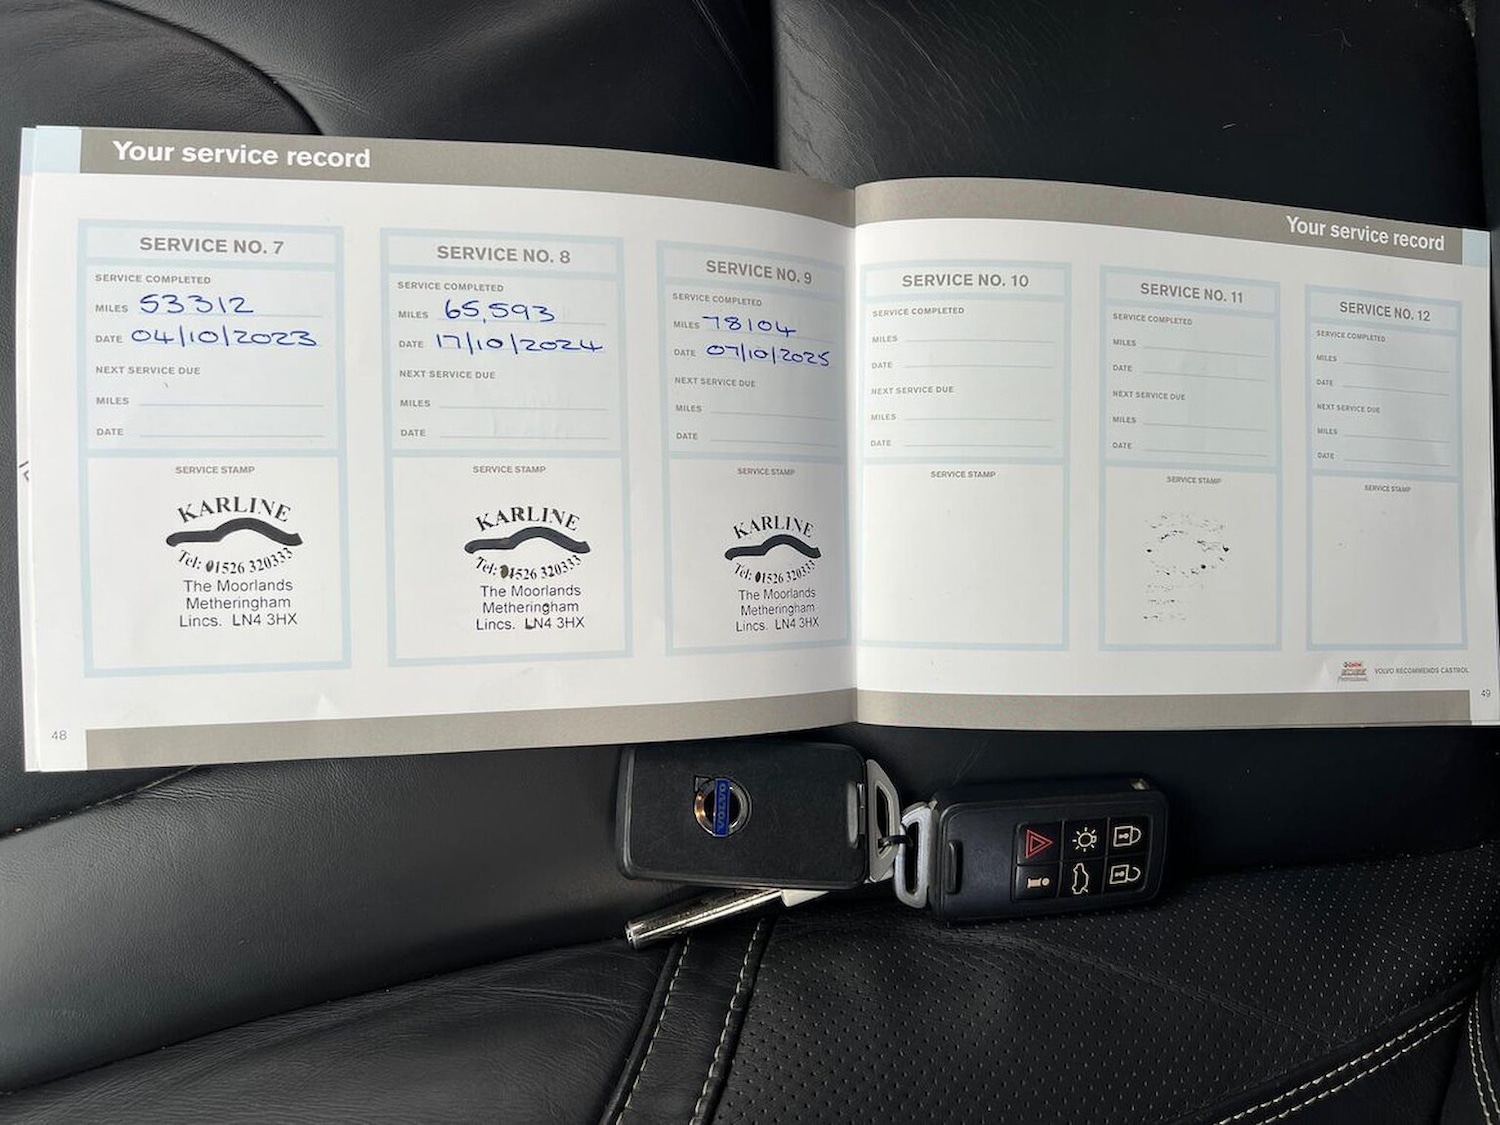 Your service record
SERVICE NO. 7
SERVICE COMPLETED
MILES 53312
DATE 04/10/2023
NEXT SERVICE DUE
MILES
DATE
SERVICE STAMP
KARLINE
Tel: 01526 320333
The Moorlands
Metheringham
Lincs. LN4 3HX
SERVICE NO. 8
SERVICE COMPLETED
MILES 65,593
DATE 17/10/2024
NEXT SERVICE DUE
MILES
DATE
SERVICE STAMP
KARLINE
Tel: 01526 320333
The Moorlands
Metheringham
Lincs. LN4 3HX
SERVICE NO. 9
SERVICE COMPLETED
MILES 78104
DATE 07/10/2025
NEXT SERVICE DUE
MILES
DATE
SERVICE STAMP
KARLINE
Tel: 01526 320333
The Moorlands
Metheringham
Lincs. LN4 3HX
48
Your service record
SERVICE NO. 10
SERVICE COMPLETED
MILES
DATE
NEXT SERVICE DUE
MILES
DATE
SERVICE STAMP
SERVICE NO. 11
SERVICE COMPLETED
MILES
DATE
NEXT SERVICE DUE
MILES
DATE
SERVICE STAMP
SERVICE NO. 12
SERVICE COMPLETED
MILES
DATE
NEXT SERVICE DUE
MILES
DATE
SERVICE STAMP
VOLVO RECOMMENDS CASTROL
49
VOLVO